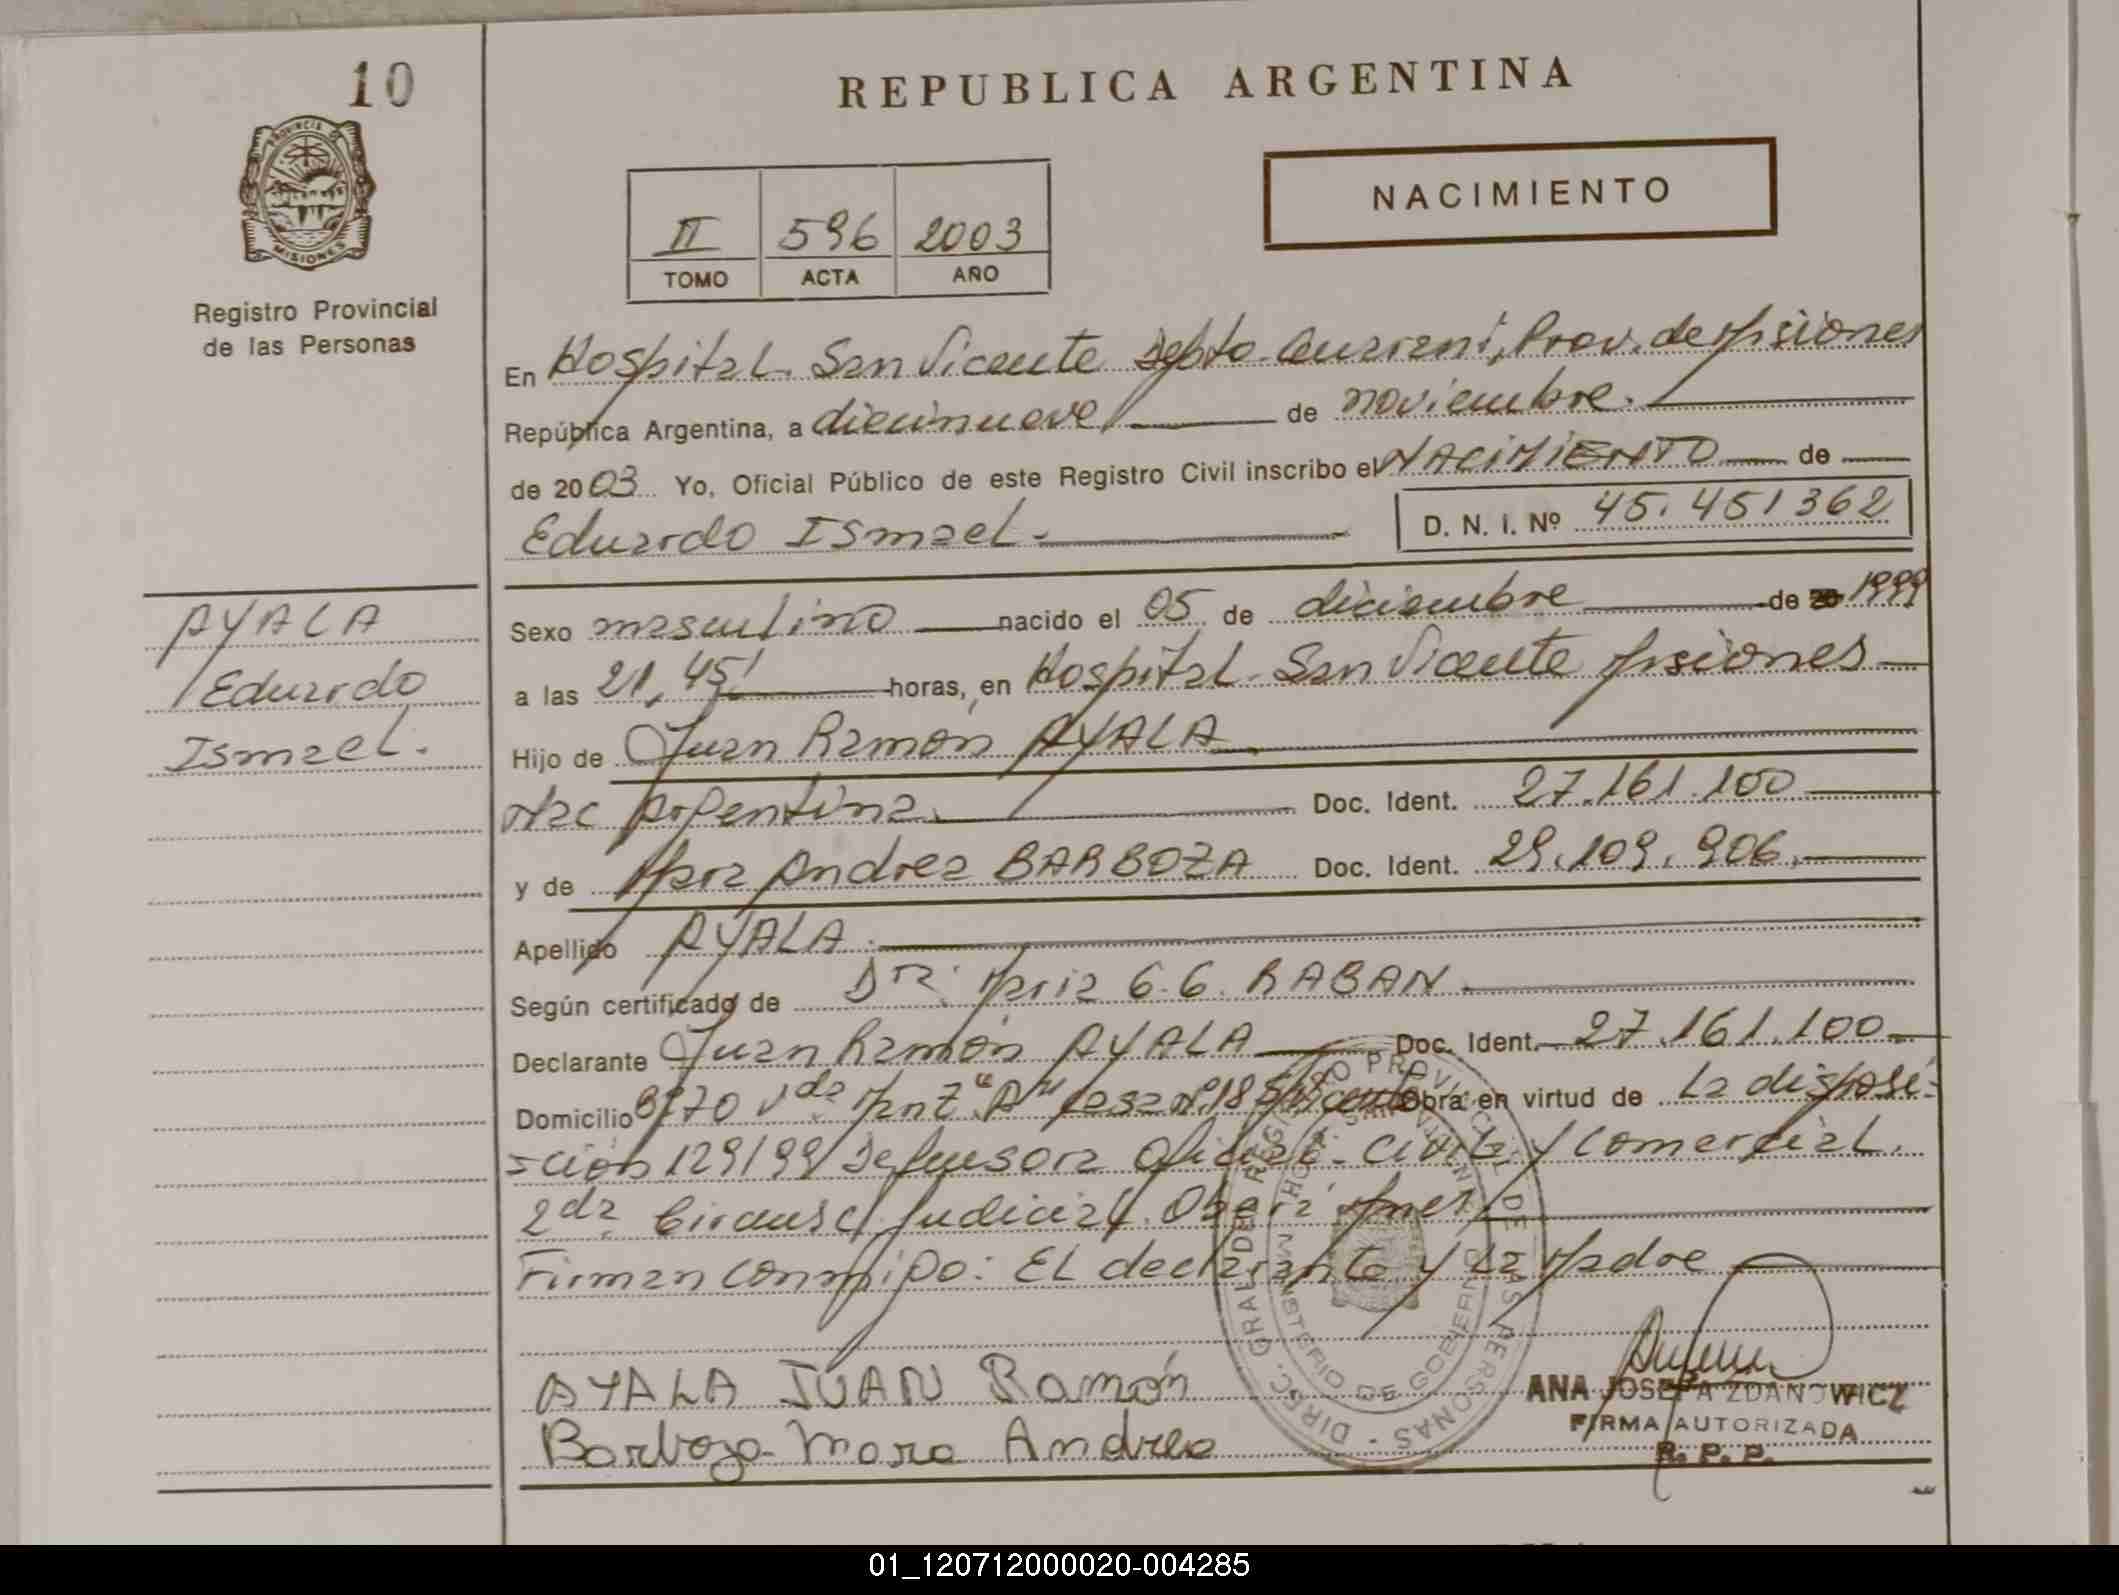 10
REPUBLICA ARGENTINA
NACIMIENTO
PROVINCIA DE MISIONES
II 596 2003
TOMO ACTA AÑO
Registro Provincial
de las Personas
En Hospital San Vicente Depto. Guarani, Prov. de Misiones
República Argentina, a diecinueve de noviembre.
de 2003 Yo, Oficial Público de este Registro Civil inscribo el NACIMIENTO de
Eduardo Ismael. D. N. I. Nº 45.451362
AYALA
Eduardo
Ismael.
Sexo masculino nacido el 05 de diciembre de 20 1999
a las 21,45 horas, en Hospital San Vicente Misiones
Hijo de Juan Ramón AYALA
Nac Argentina. Doc. Ident. 27.161.100
y de Mara Andrea BARBOZA Doc. Ident. 29.109.906.
Apellido AYALA.
Según certificado de Dra. Maria G.G. RABAN
Declarante Juan Ramón AYALA Doc. Ident. 27.161.100
Domicilio Vda Manz "A" casa nº 18 Obra en virtud de La disposi-
-ción 129/99 Defensora Oficial Civil y Comercial.
2da Circunsc. Judicial. Oberá Mnes
Firman conmigo: EL declarante y La Madre
AYALA JUAN Ramón
Barboza Mara Andrea
DIREC. GRAL. DEL REGISTRO PROVINCIAL DE LAS PERSONAS
MINISTERIO DE GOBIERNO
ANA JOSEFA ZDANOWICZ
FIRMA AUTORIZADA
R. P. P.
01_120712000020-004285